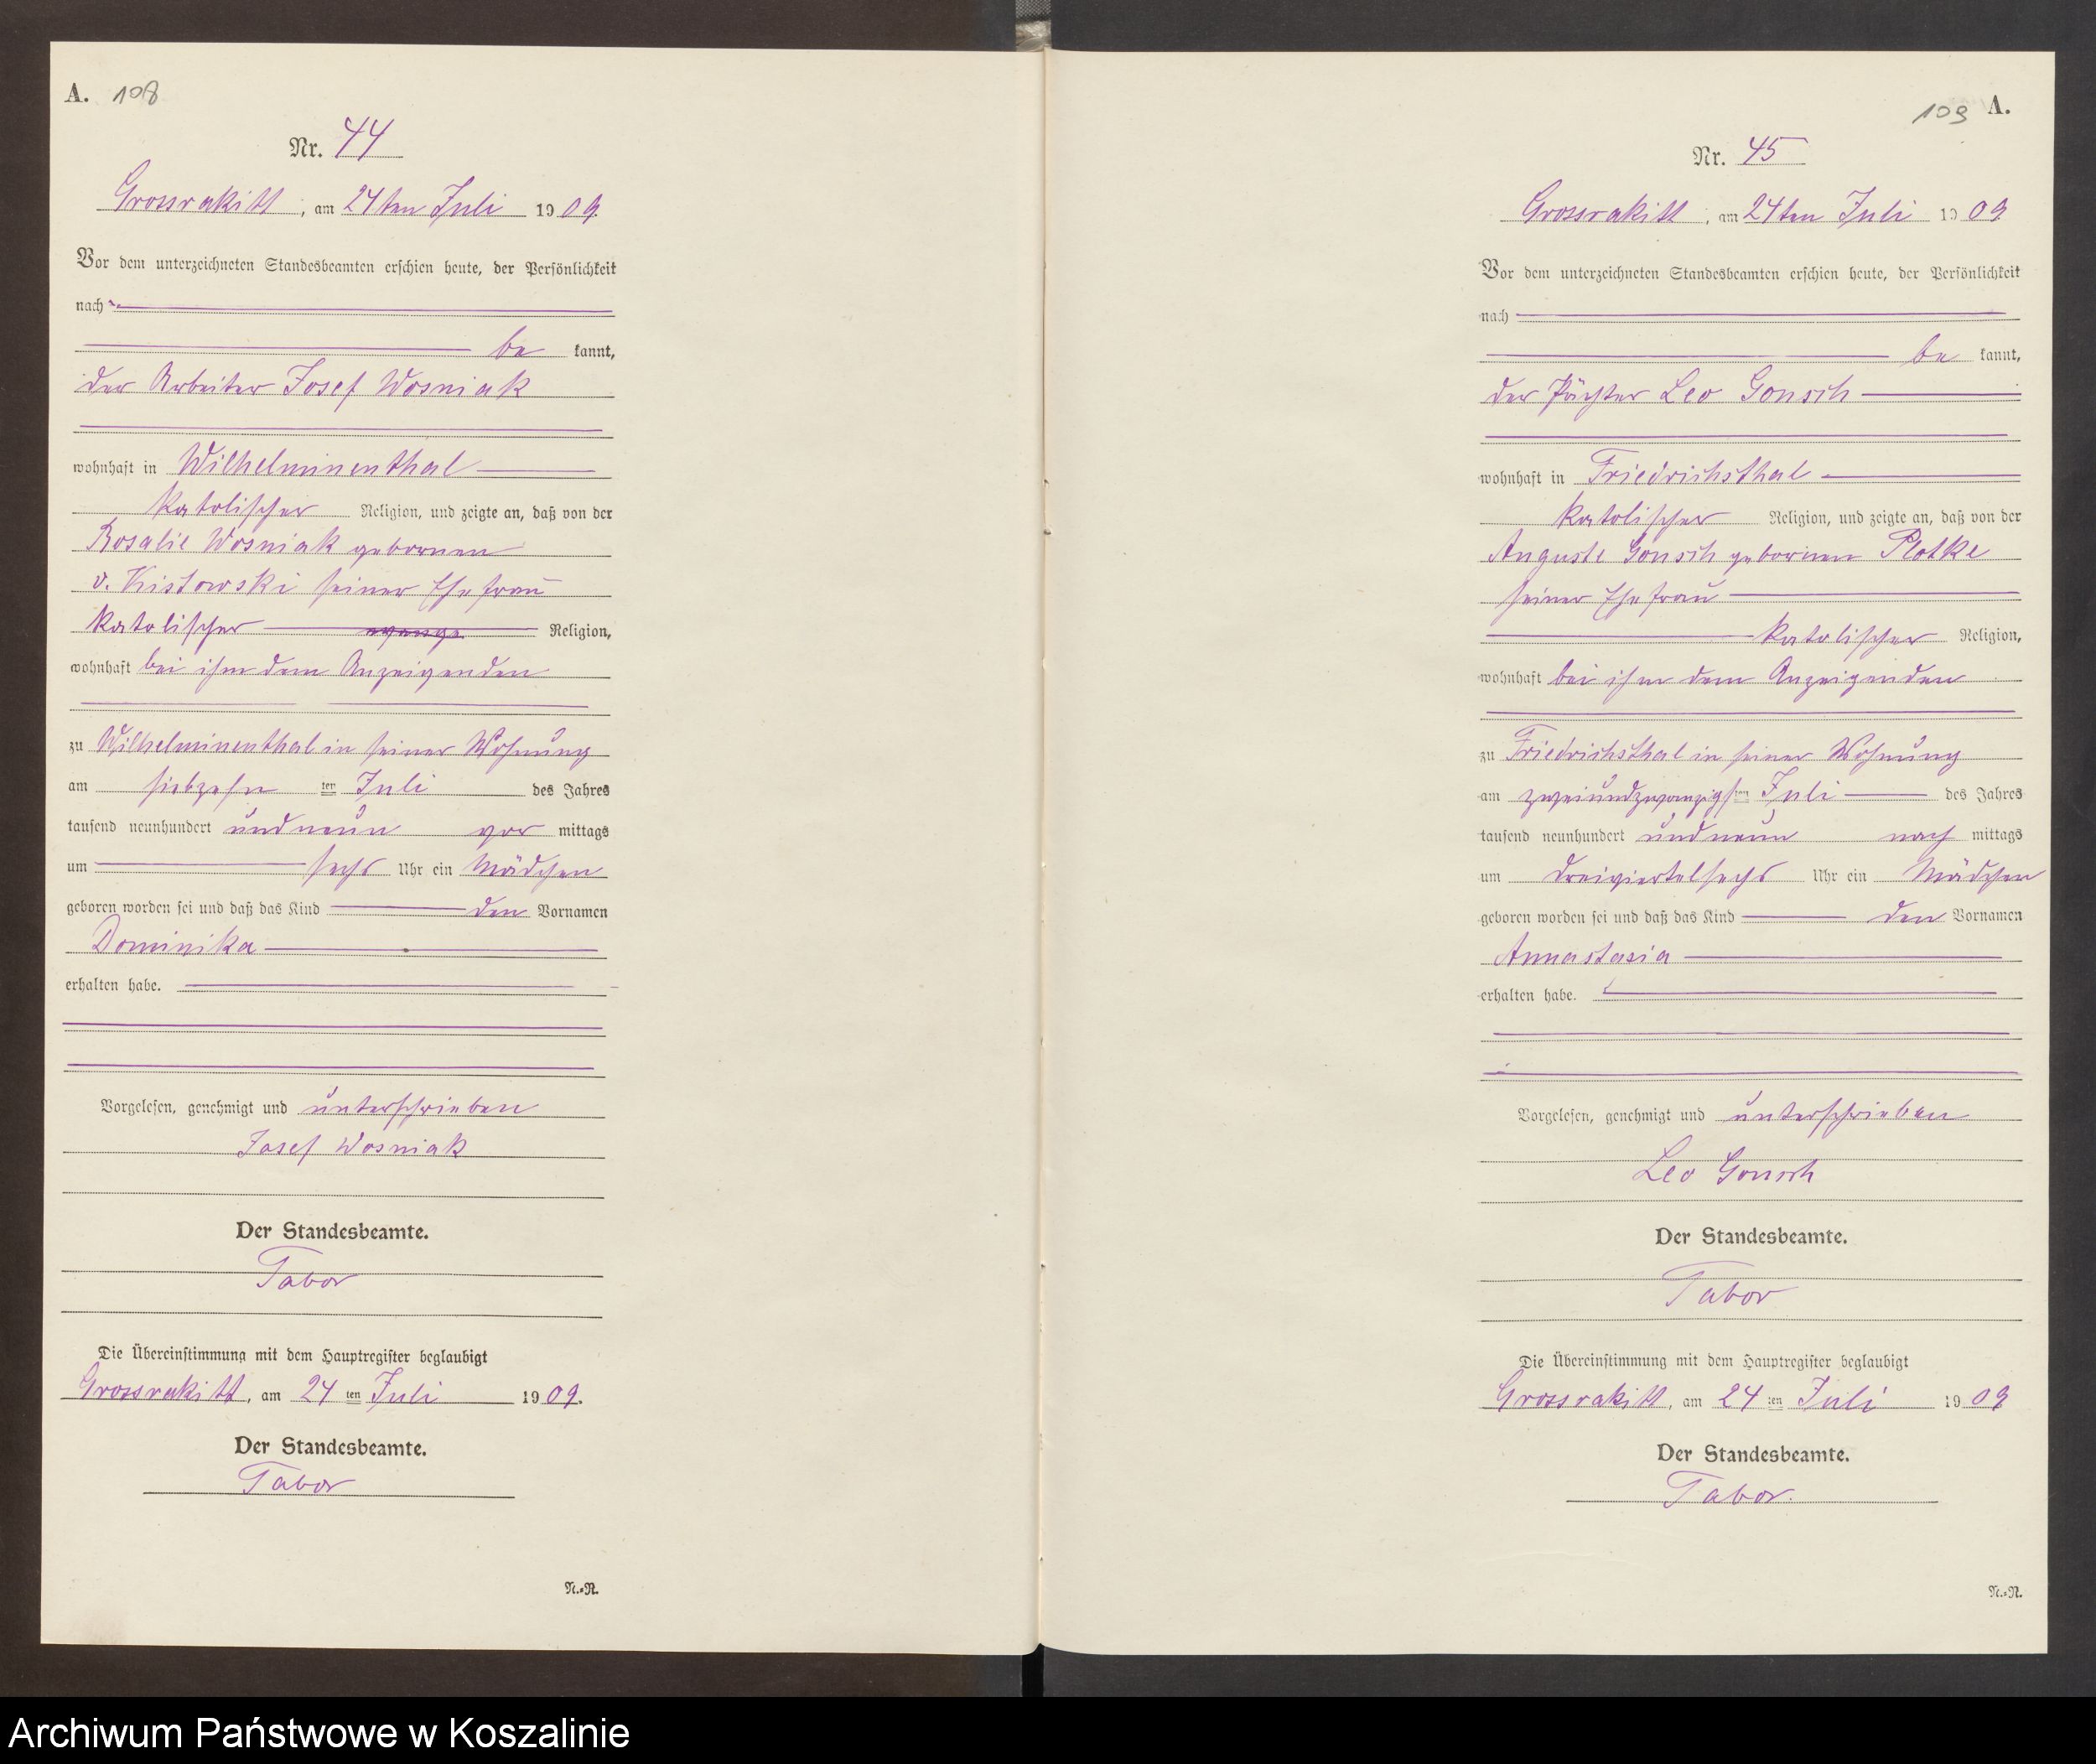 A. 108
Nr. 44
Grossrakitt, am 24ten Juli 1909.
Vor dem unterzeichneten Standesbeamten erschien heute, der Persönlichkeit
nach
be kannt,
der Arbeiter Josef Wosniak
wohnhaft in Wilhelminenthal
katolischer Religion, und zeigte an, daß von der
Rosalie Wosniak gebornen
v. Kistowski seiner Ehefrau
katolischer Religion,
wohnhaft bei ihm dem Anzeigenden
zu Wilhelminenthal in seiner Wohnung
am siebzehn ten Juli des Jahres
tausend neunhundert und neun vor mittags
um sechs Uhr ein Mädchen
geboren worden sei und daß das Kind den Vornamen
Dominika
erhalten habe.
Vorgelesen, genehmigt und unterschrieben
Josef Wosniak
Der Standesbeamte.
Tabor
Die Übereinstimmung mit dem Hauptregister beglaubigt
Grossrakitt, am 24 ten Juli 1909.
Der Standesbeamte.
Tabor
N.=R.
109 A.
Nr. 45
Grossrakitt, am 24ten Juli 1909
Vor dem unterzeichneten Standesbeamten erschien heute, der Persönlichkeit
nach
be kannt,
der Pächter Leo Gonsch
wohnhaft in Friedrichsthal
katolischer Religion, und zeigte an, daß von der
Auguste Gonsch gebornen Plotke
seiner Ehefrau
katolischer Religion,
wohnhaft bei ihm dem Anzeigenden
zu Friedrichsthal in seiner Wohnung
am zweiundzwanzigsten Juli des Jahres
tausend neunhundert und neun nach mittags
um dreiviertelsechs Uhr ein Mädchen
geboren worden sei und daß das Kind den Vornamen
Annastasia
erhalten habe.
Vorgelesen, genehmigt und unterschrieben
Leo Gonsch
Der Standesbeamte.
Tabor
Die Übereinstimmung mit dem Hauptregister beglaubigt
Grossrakitt, am 24 ten Juli 1909
Der Standesbeamte.
Tabor.
N.=R.
Archiwum Państwowe w Koszalinie